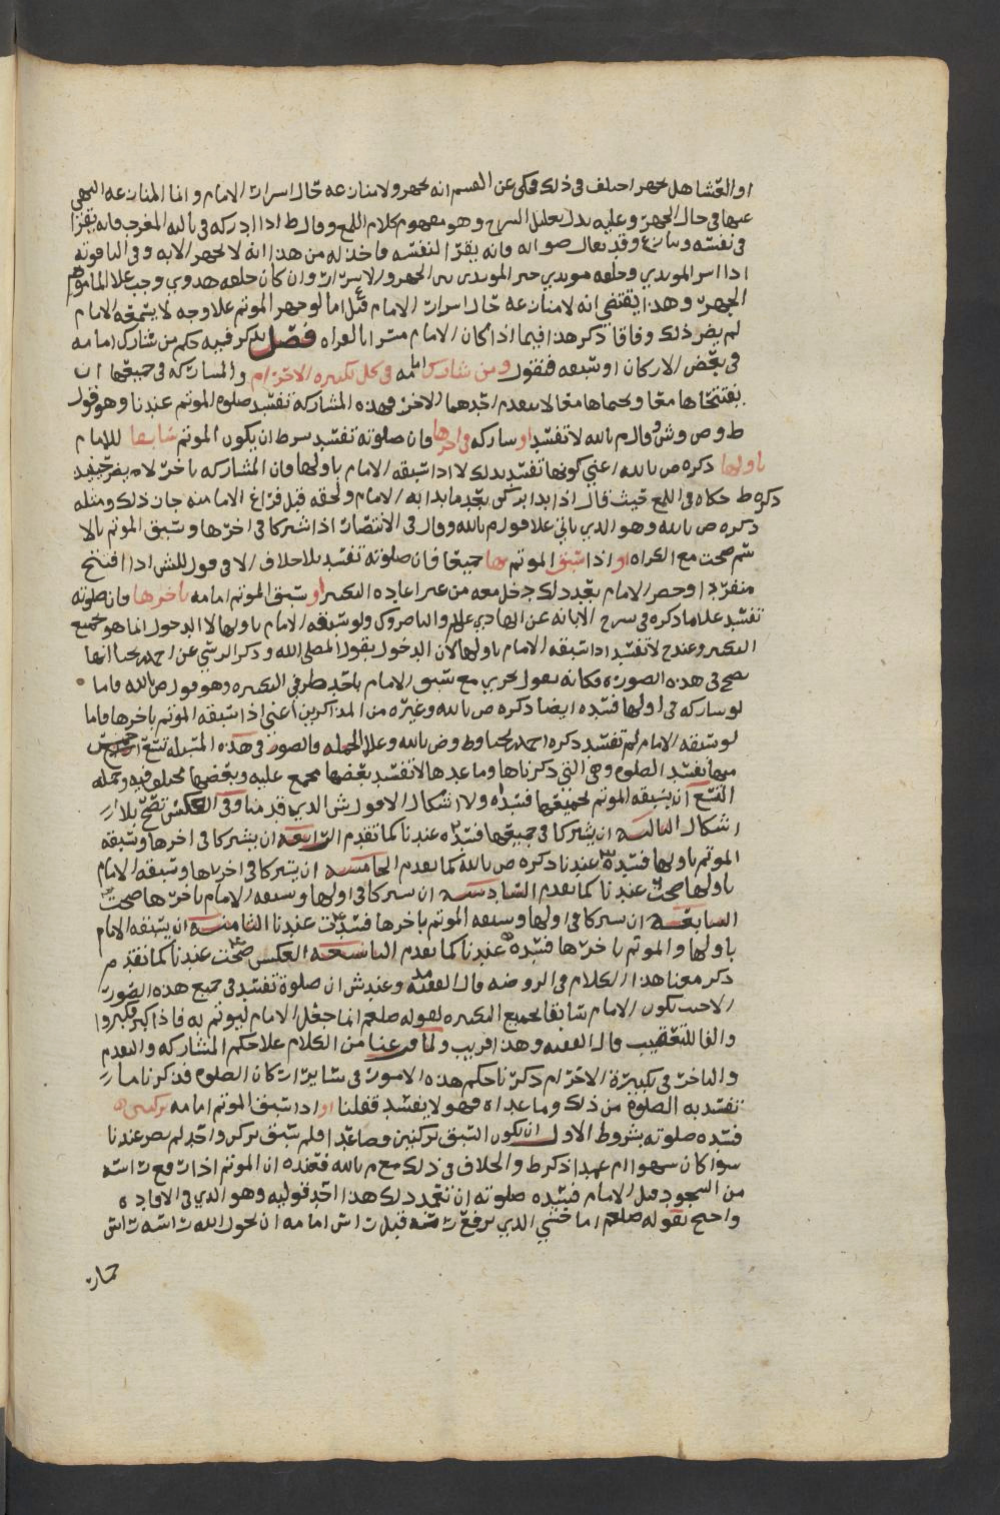 او العشا هل يجهر اختلف في ذلك فحكى عن القسم انه يجهر ولا منازعه حال اسرار الامام وانما المنازعه النهي
عنها في حال الجهر وعليه يدل تعليل الشرح وهو مفهوم كلام اللمع وقال ط اذا ادركه في ثالثه المغرب فانه يقرا
في نفسه فانه يقرا لنفسه فاخذ له من هذا انه لا يجهر الا به وفي الياقوته
اذا اسر الموتم وخلفه الجهر والاسرار وان كان خلفه وجب على الماموم
الجهر وهذا يقتضي انه لا منازعه حال اسرار الامام قيل اما لو جهر الموتم على وجه لا يسمعه الامام
لم يضر ذلك وفاقا ذكر هذا فيما اذا كان الامام مسرا بالقراه فصل يذكر فيه حكم من شارك امامه
في بعض الاركان او سبقه فنقول ومن شارك امامه في كل تكبيره الاحرام والمشاركه في جميعها ان
يفتتحاها معا ويختماها معا لا يتقدم احدهما الاخر فهذه المشاركه تفسد صلوه الموتم عندنا وهو قول
ط وص وش وقال م بالله لا تفسد او شاركه في اخرها فان صلوته تفسد بشرط ان يكون الموتم سابقا للامام
باولها ذكره ص بالله اعني كونها تفسد بذلك لا اذا سبقه الامام باولها فان المشاركه باخر لا يضر حينئذ
ذكره ط حكاه في اللمع حيث قال اذا ابتدا بعد ما بدا به الامام ولحقه قبل فراغ الامام منه جاز ذلك ومثله
ذكره ص بالله وهو الذي ياتي على قول م بالله وقال في الانتصار اذا اشتركا في اخرها وسبق الموتم بالا
سم صحت مع الكراه او اذا سبق الموتم بها جميعا فان صلوته تفسد بلا خلاف الا في قول للش اذا افتتح
منفردا وحضر الامام بعد ذلك دخل معه من غير اعاده التكبير او سبق الموتم امامه باخرها فان صلوته
تفسد على ما ذكره في شرح الابانه عن الهادي علم والناصر وك ولو سبقه الامام باولها لا الدخول انما هو بجميع
التكبير وعند ح لا تفسد اذا سبقه الامام باولها لان الدخول يقول المصلي الله وذكر عن احمد بن يحيا انها
تصح في هذه الصوره فكانه يقول يجزي مع سبق الامام باحد طرفي التكبيره وهو قول ص بالله فاما
لو شاركه في اولها فسده ايضا ذكره ص بالله وغيره من المذاكرين اعني اذا سبقه الموتم باخرها فاما
لو سبقه الامام لم تفسد ذكره احمد بن يحيا وط وص بالله وعلى الجمله فالصور في هذه المسله تسع خمس
منها تفسد الصلوه وهي التي ذكرناها وما عداها لا تفسد بعضها مجمع عليه وبعضها مختلف فيه وجمله
التسع ان يسبقه الموتم بجميعها فسده ولا اشكال الا قول ش الذي قدمنا وفي العكس تصح بلا
اشكال الثالثه ان يشتركا في جميعها فسده عندنا كما تقدم الرابعه ان يشتركا في اخرها وسبقه
الموتم باولها فسده عندنا ذكره ص بالله كما تقدم الخامسه ان يشتركا في اخرها وسبقه الامام
باولها صحت عندنا كما تقدم السادسه ان يشتركا في اولها وسبقه الامام باخرها صحت
السابعه ان يشتركا في اولها وسبقه الموتم باخرها فسدت عندنا الثامنه ان يسبقه الامام
باولها والموتم باخرها فسده عندنا كما تقدم التاسعه العكس صحت عندنا كما تقدم
ذكر معنا هذا الكلام في الروضه قال الفقيه وعند ش ان صلوة تفسد في جميع هذه الصور
الا حيث يكون الامام سابقا بجميع التكبيره لقوله صلعم انما جعل الامام ليوتم به فاذا كبر فكبروا
والفا للتعقيب قال الفقيه وهذا قريب ولما فرغنا من الكلام على حكم المشاركه والتقدم
والتاخر في تكبيرة الاحرام ذكرنا حكم هذه الامور في ساير اركان الصلوه فذكرنا ما
تفسد به الصلوه من ذلك وما عداه فهو لا يفسد فقلنا او اذا سبق الموتم امامه بركنين
فسده صلوته بشروط الاول ان يكون السبق بركنين فصاعدا فلم سبق بركن واحد لم يضر عندنا
سوا كان سهوا ام عمدا ذكر ط والخلاف في ذلك مع م بالله فعنده ان الموتم اذا رفع راسه
من السجود قبل الامام فسده صلوته ان تعمد ذلك هذا احد قوليه وهو الذي في الافاده
واحتج بقوله صلعم اما خشي الذي يرفع راسه قبل راس امامه ان يحول الله راسه راس
حمار